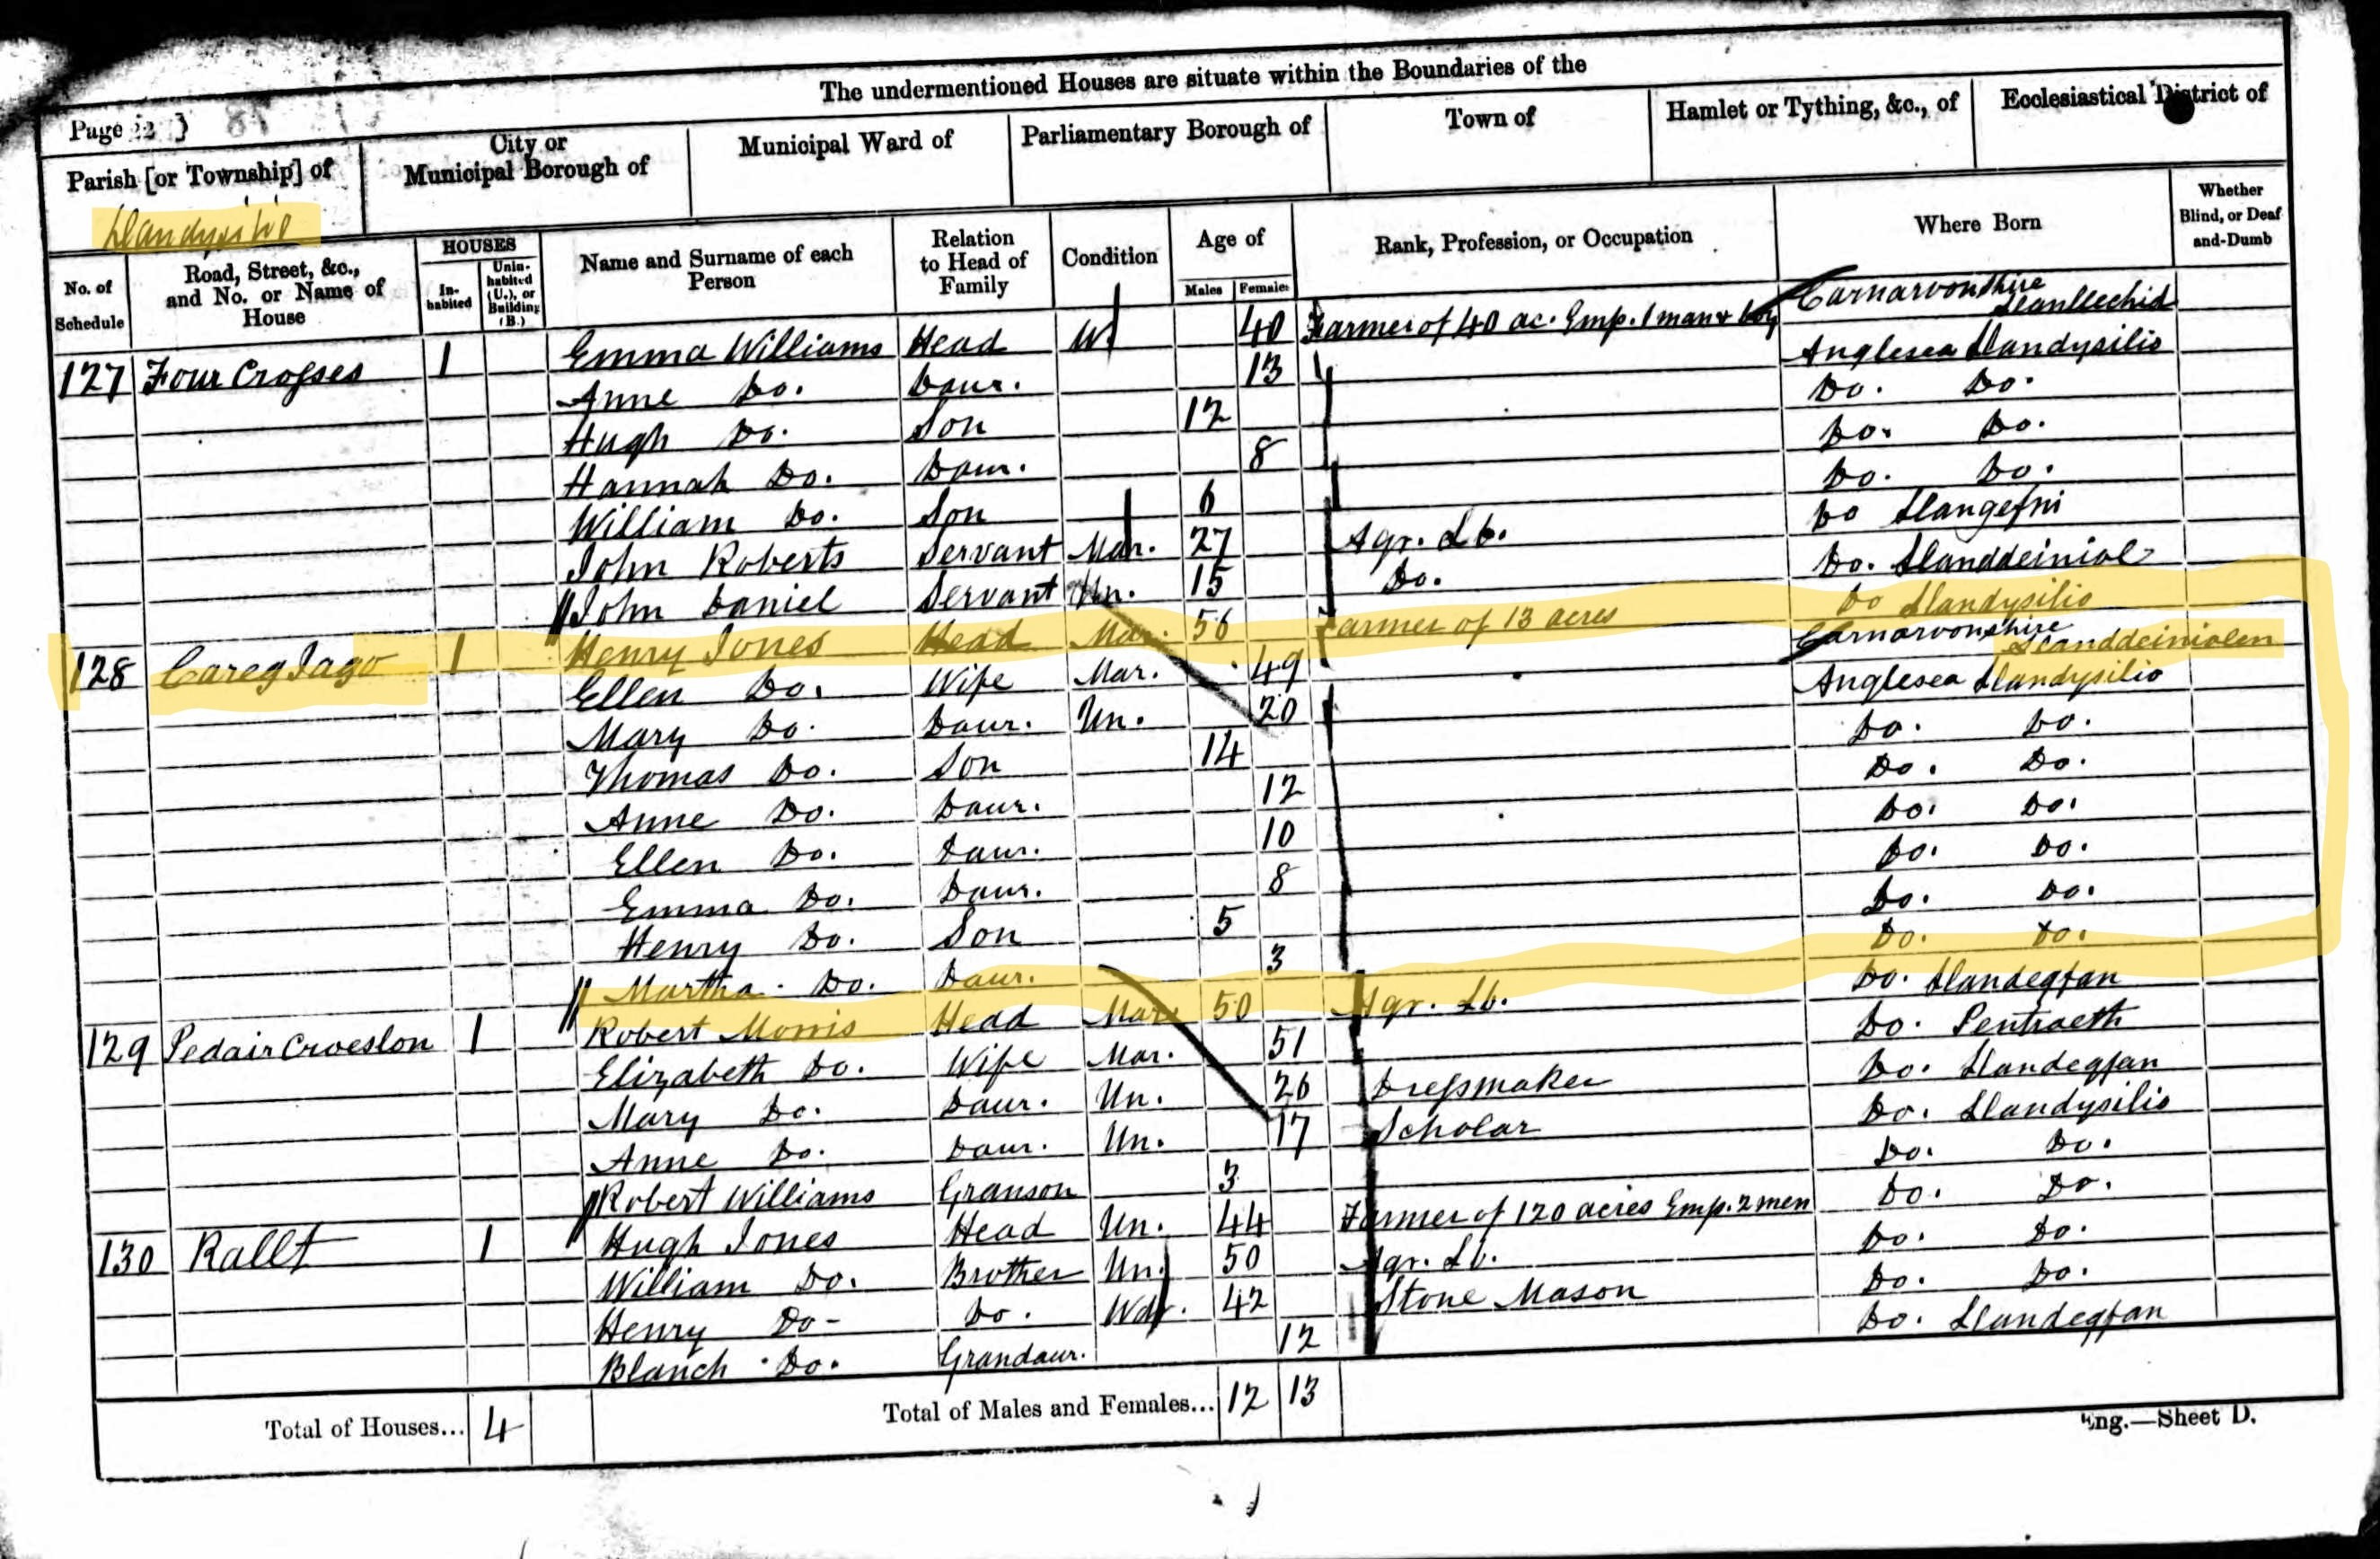 The undermentioned Houses are situate within the Boundaries of the
Page 22 } 87
Parish [or Township] of
City or Municipal Borough of
Municipal Ward of
Parliamentary Borough of
Town of
Hamlet or Tything, &c., of
Ecclesiastical District of
Llandysilio
No. of Schedule
Road, Street, &c., and No. or Name of House
HOUSES
In-habited
Unin-habited (U.), or Building (B.)
Name and Surname of each Person
Relation to Head of Family
Condition
Age of
Males
Females
Rank, Profession, or Occupation
Where Born
Whether Blind, or Deaf-and-Dumb
127 Four Crosses 1 Emma Williams Head W. 40 Farmer of 40 ac. Emp. 1 man & boy Carnarvonshire Llanllechid
Anne Do. Daur. 13 Anglesea Llandysilio
Hugh Do. Son 12 Do. Do.
Hannah Do. Daur. 8 Do. Do.
William Do. Son 6 Do. Do.
John Roberts Servant Mar. 27 Agr. Lb. Do Llangefni
John Daniel Servant Un. 15 Do. Do. Llanddeiniol
128 Careg Iago 1 Henry Jones Head Mar. 56 Farmer of 13 acres Do Llandysilio
Ellen Do. Wife Mar. 49 Carnarvonshire Llanddeiniolen
Mary Do. Daur. Un. 20 Anglesea Llandysilio
Thomas Do. Son 14 Do. Do.
Anne Do. Daur. 12 Do. Do.
Ellen Do. Daur. 10 Do. Do.
Emma Do. Daur. 8 Do. Do.
Henry Do. Son 5 Do. Do.
Martha Do. Daur. 3 Do. Do.
129 Pedair Croeslon 1 Robert Morris Head Mar. 50 Agr. Lb. Do. Llandegfan
Elizabeth Do. Wife Mar. 51 Do. Pentraeth
Mary Do. Daur. Un. 26 Dressmaker Do. Llandegfan
Anne Do. Daur. Un. 17 Scholar Do. Llandysilio
Robert Williams Granson 3 Do. Do.
130 Rallt 1 Hugh Jones Head Un. 44 Farmer of 120 acres Emp. 2 men Do. Do.
William Do. Brother Un. 50 Agr. Lb. Do. Do.
Henry Do- Do. Wdr. 42 Stone Mason Do. Do.
Blanch Do. Grandaur. 12 Do. Llandegfan
Total of Houses... 4 Total of Males and Females... 12 13
Eng.—Sheet D.